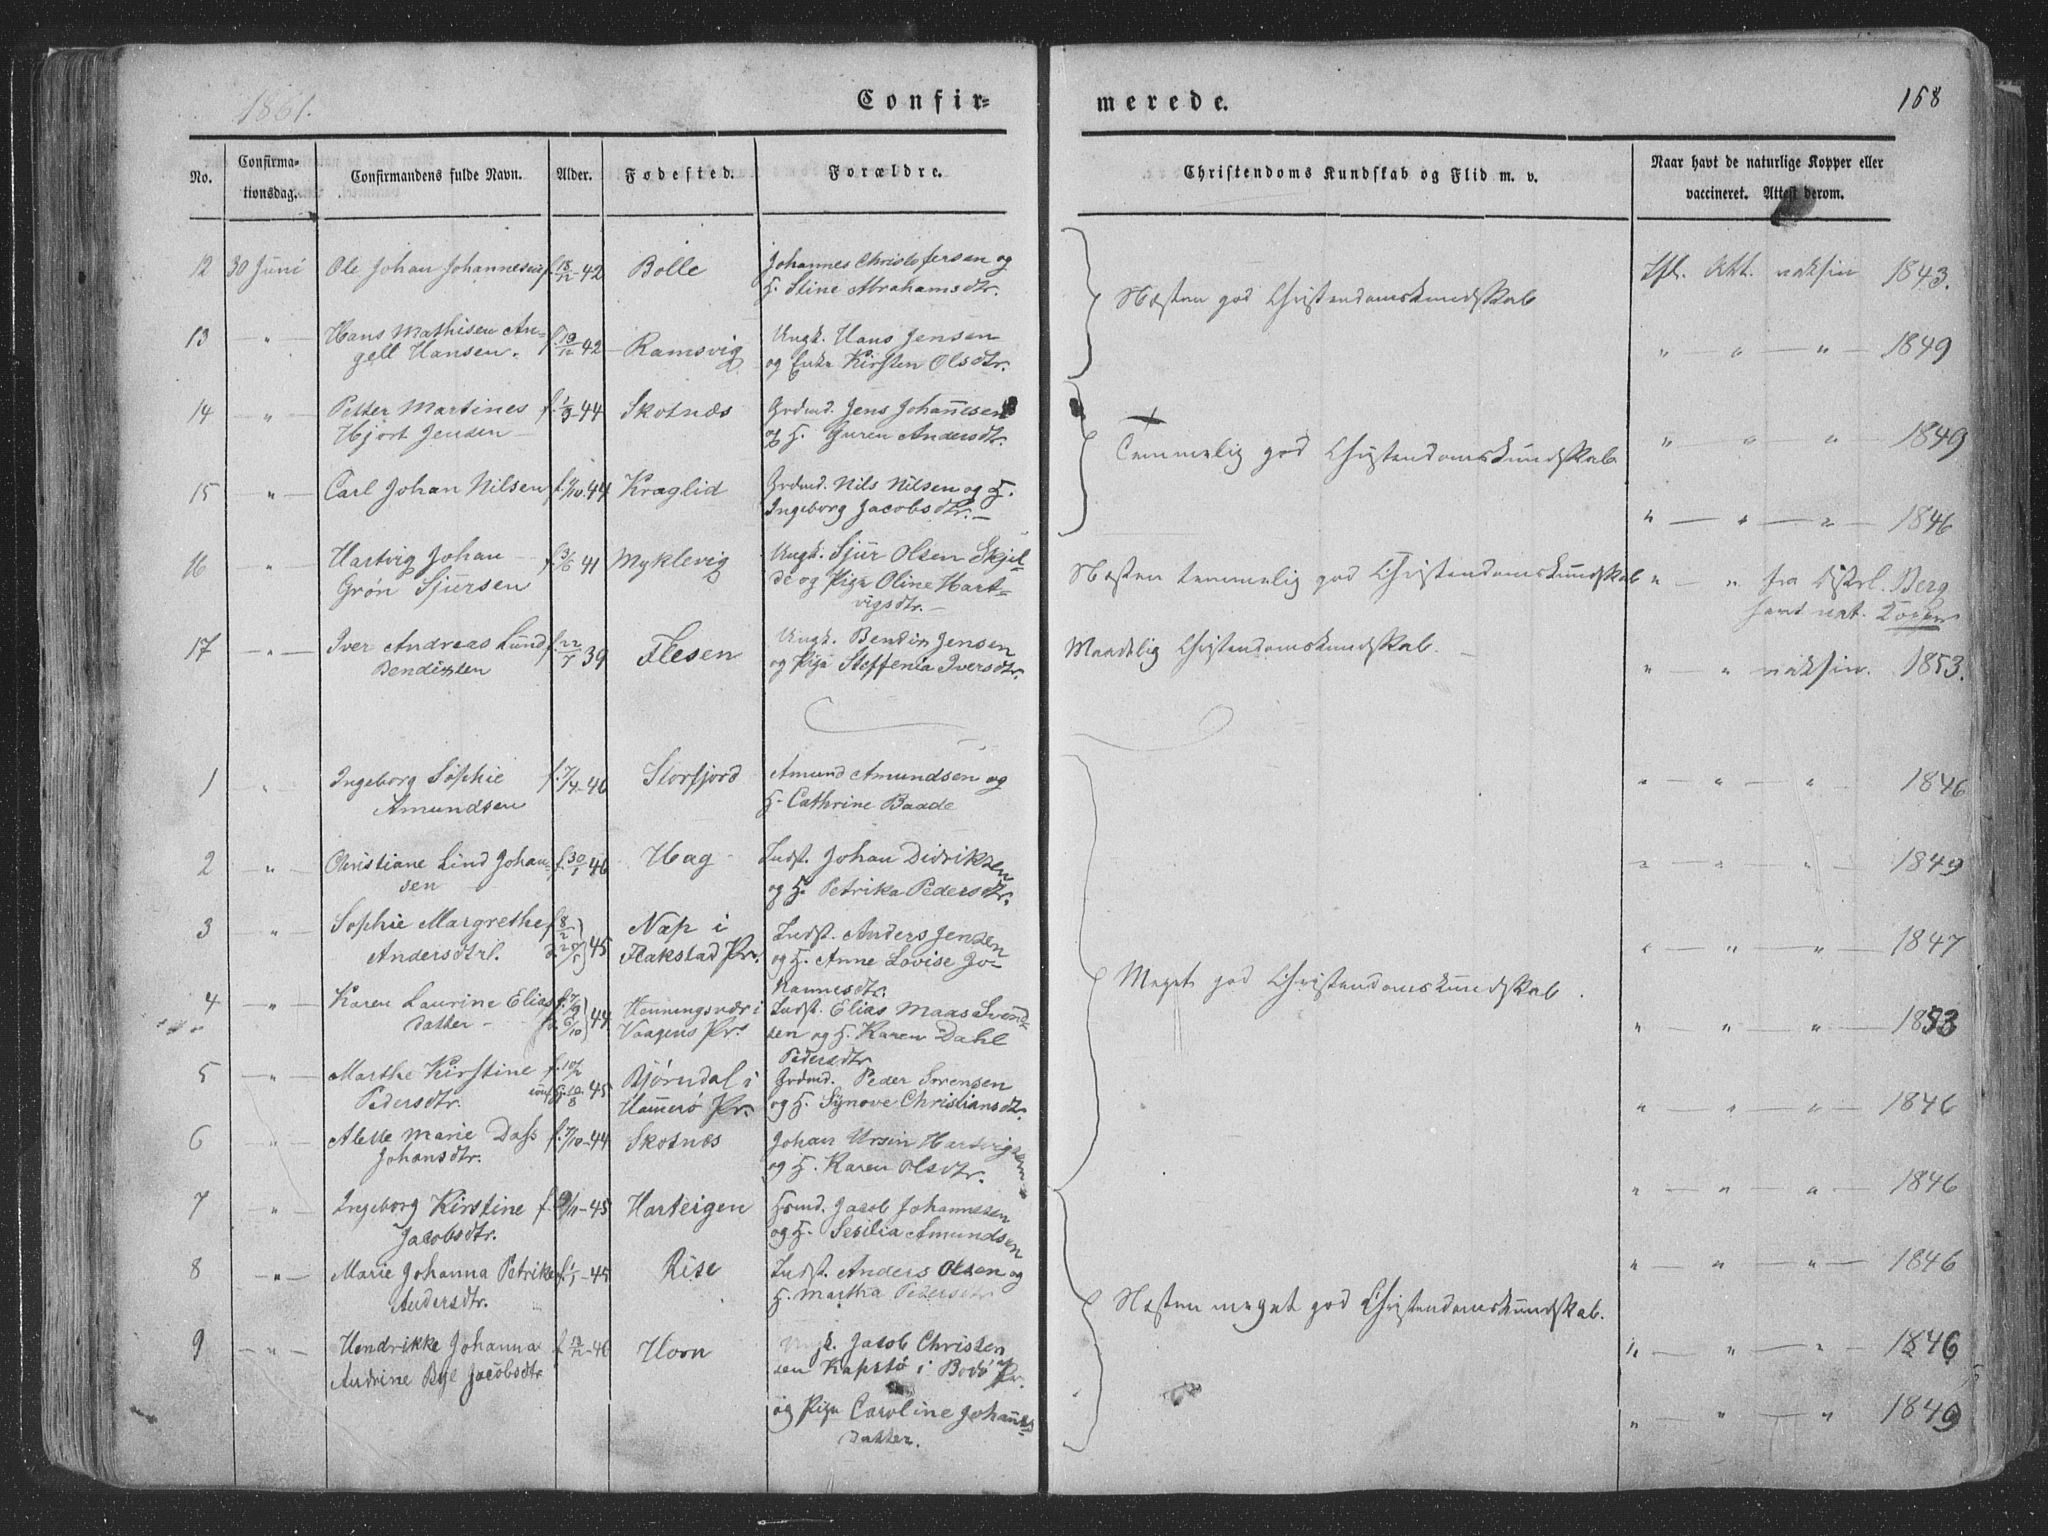 1861.
Confir-
merede.
168
No.
Confirma-
tionsdag.
Confirmandens fulde Navn.
Alder.
Fødested.
Forældre.
Christendoms Kundskab og Flid m. v.
Naar havt de naturlige Kopper eller
vaccineret. Attest derom.
12 30 Juni Ole Johan Johannesen f. 18/12-42 Bolle Johannes Christofersen og
H. Stine Abrahamsdtr.
Næsten god Christendomskundskab
Ifl. Att. vaksin 1843.
13 - " - Hans Mathisen An-
gell Hansen. f. 19/12 42 Ramsvig Ungk. Hans Jensen
og Enke Kirsten Olsdtr.
" - " - " - 1849
14 - " - Petter Martines
Hjort Jensen f. 1/3-44 Skotnæs Grdmd. Jens Johannesen
og H. Guren Andersdtr.
Temmelig god Christendomskundskab
" " " 1849
15 " - Carl Johan Nilsen f. 7/10-44 Kraglid Grdmd. Nils Nilsen og H.
Ingeborg Jacobsdtr.
" - " - " - 1846
16 " Hartvig Johan
Grøn Sjursen f. 3/6 41 Myklevig Ungk. Sjur Olsen Skjel-
de og Pige Oline Hart-
vigsdtr.
Næsten temmelig god Christendomskundskab " - " fra Distrl. Berg
havt nat. Kopper
17 - " - Iver Andreas Lund
Bendixen f. 22/7 39 Flesen Ungk. Bendix Jensen
og Pige Steffenia Iversdtr.
Maadelig Christendomskundskab. - " - " vaksin. 1853.
1 " Ingeborg Sophie
Amundsen f. 7/4-46 Storfjord Amund Amundsen og
H. Cathrine Baade
" - " - " 1846
2 - " - Christiane Lind Johan-
sen f. 30/1 46 Hag Indst. Johan Didriksen
og H. Petrika Pedersdtr.
" - " - " - 1849
3 - " - Sophie Margrethe
Andersdtr. f. 8/2 45 Nap i
Flakstad Pr. Indst. Anders Jensen
og H. Anne Lovise Jo-
hannesdtr.
" - " - " - 1847
Meget god Christendomskundskab.
4 " Karen Laurine Elias
datter - f. 7/9 44 Henningsvær i
Vaagens Pr. Indst. Elias Maas Svend-
sen og H. Karen Dahl
Pedersdtr
" - " - " - 1853
5 - " - Marthe Kirstine
Pedersdtr. f. 10/2 45 Bjørndal i
Hamerø Pr. Grdmd. Peder Sørensen
og H. Synove Christiansdtr.
" - " - " - 1846
6 " Alette Marie Dass
Johansdtr. f. 7/10-44 Skotnæs Johan Ursin Hartvigsen
og H. Karen Olsdtr.
" - " - " - 1846
7 - " - Ingeborg Kirstine
Jacobsdtr. f. 9/11-45 Harteigen Hsmd. Jacob Johannesen
og H. Sesilia Amundsen
" " - " - 1846
8 - " - Marie Johanna Petrike
Andersdtr. f. 1/1-45 Rise Indst. Anders Olsen og
H. Martha Pedersdtr
Næsten meget god Christendomskundskab.
" - " - " - 1846
9 - " - Hendrikke Johanna
Andrine Bye Jacobsdtr f. 12/12-46 Horn Ungk. Jacob Christen
sen Kapstø i Bodø Pr.
og Pige Caroline Johannes
datter.
" - " - " - 1849